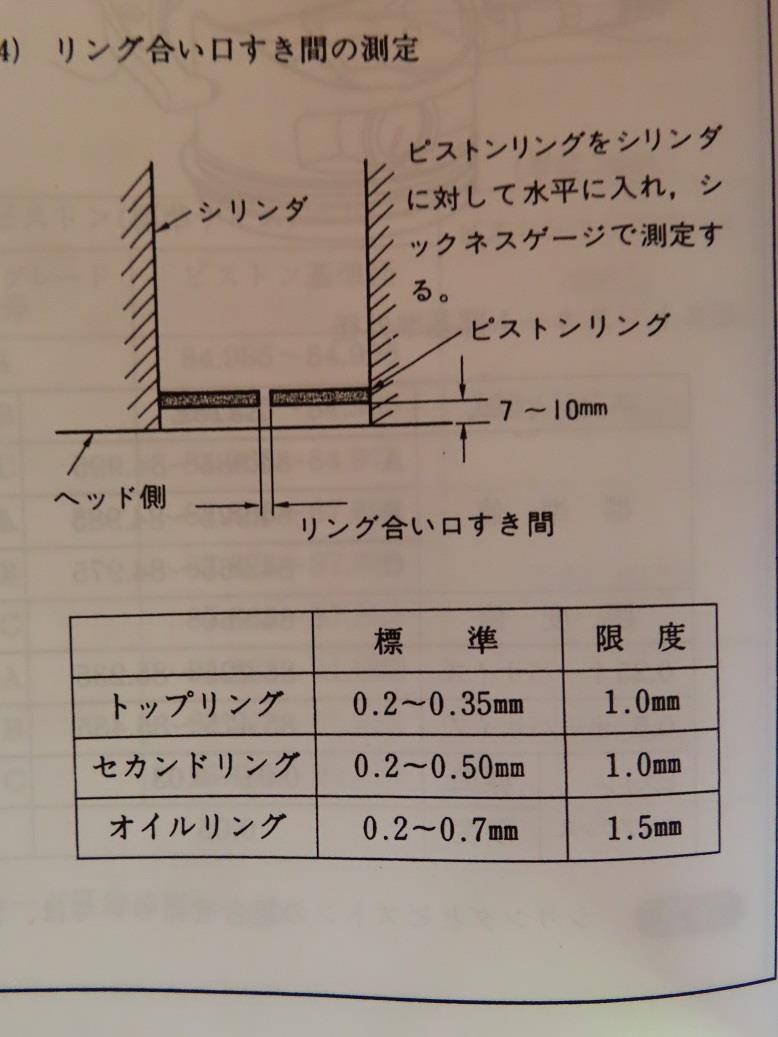 4) リング合い口すき間の測定
ピストンリングをシリンダ
に対して水平に入れ，シ
ックネスゲージで測定す
る。
シリンダ
ピストンリング
7～10mm
ヘッド側
リング合い口すき間
標 準 限 度
トップリング 0.2～0.35mm 1.0mm
セカンドリング 0.2～0.50mm 1.0mm
オイルリング 0.2～0.7mm 1.5mm